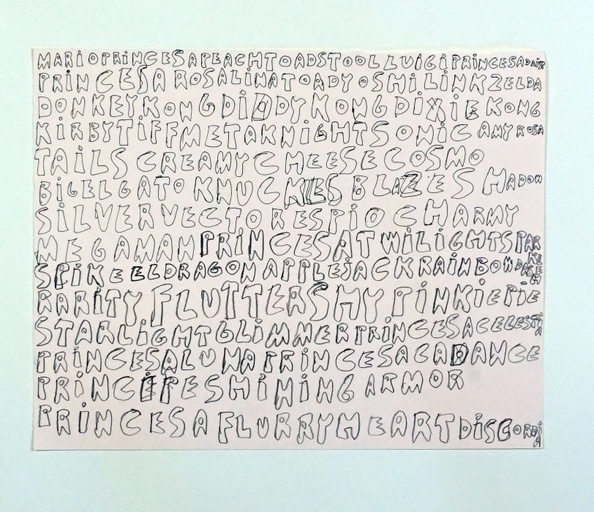 MARIOPRINCESAPEACHTOADSTOOLLUIGIPRINCESADAISY
PRINCESAROSALINATOADYOSHILINKZELDA
DONKEYKONGDIDDYKONGDIXIEKONG
KIRBYTIFFMETAKNIGHTSONICAMYROSA
TAILSCREAMYCHEESECOSMO
BIGELGATOKNUCKLESBLAZESHADOW
SILVERVECTORESPIOCHARMY
MEGAMANPRINCESATWILIGHTSPARKLE
SPIKEELDRAGONAPPLEJACKRAINBOWDASH
RARITYFLUTTERSHYPINKIEPIE
STARLIGHTGLIMMERPRINCESACELESTIA
PRINCESALUNAPRINCESACADANCE
PRINCIPESHININGARMOR
PRINCESAFLURRYHEARTDISCORDIA